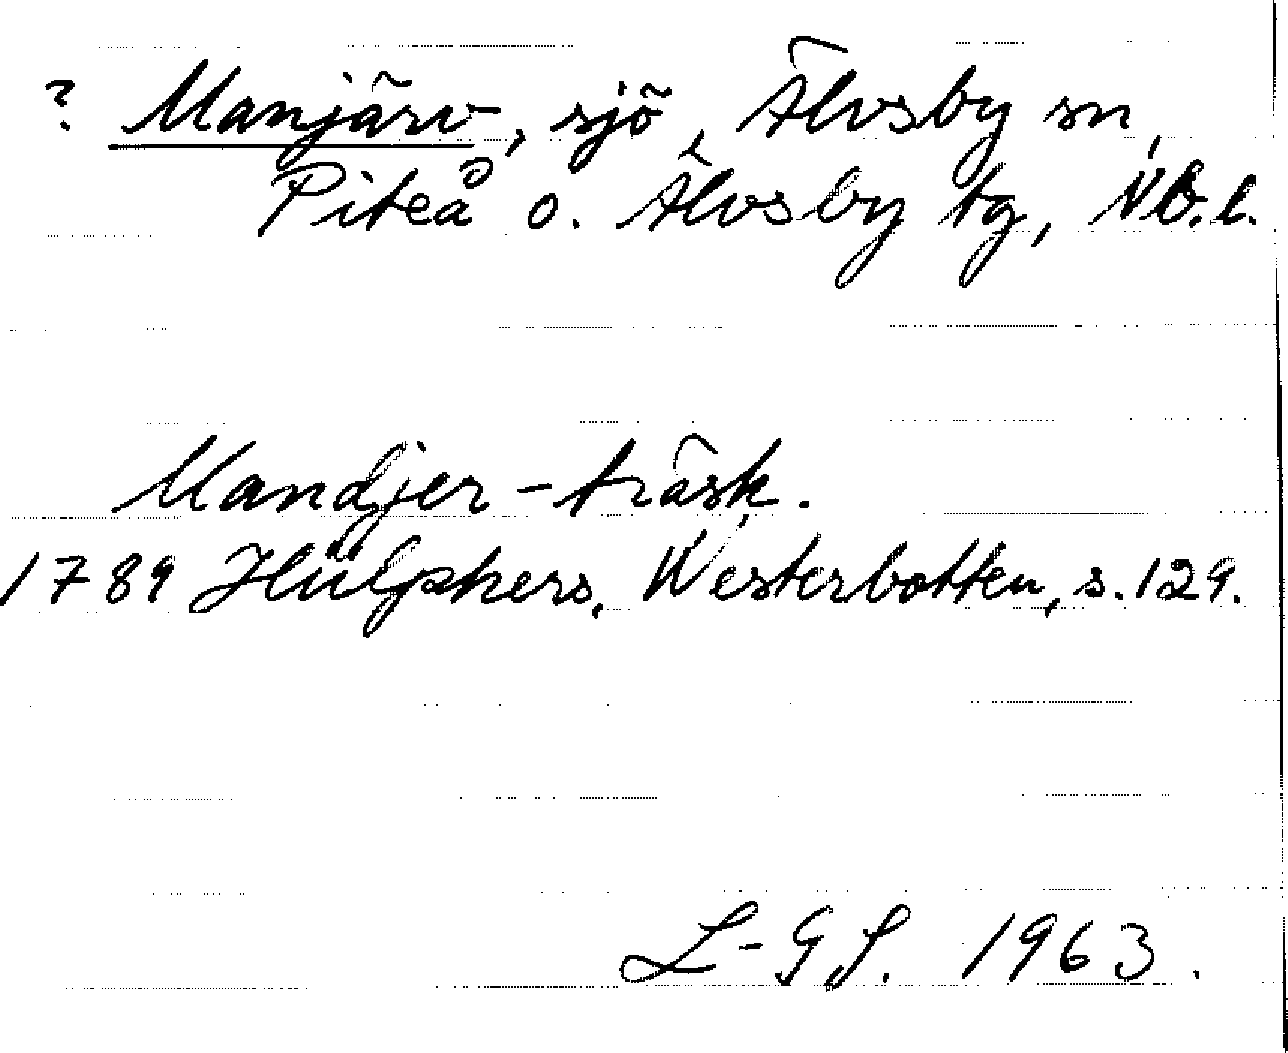 ? Manjärv, sjö, Älvsby sn,
Piteå o. Älvsby tg, Nb.l.
Mandjer-träsk.
1789 Hülphers, Westerbotten, s. 129.
L-G S. 1963.